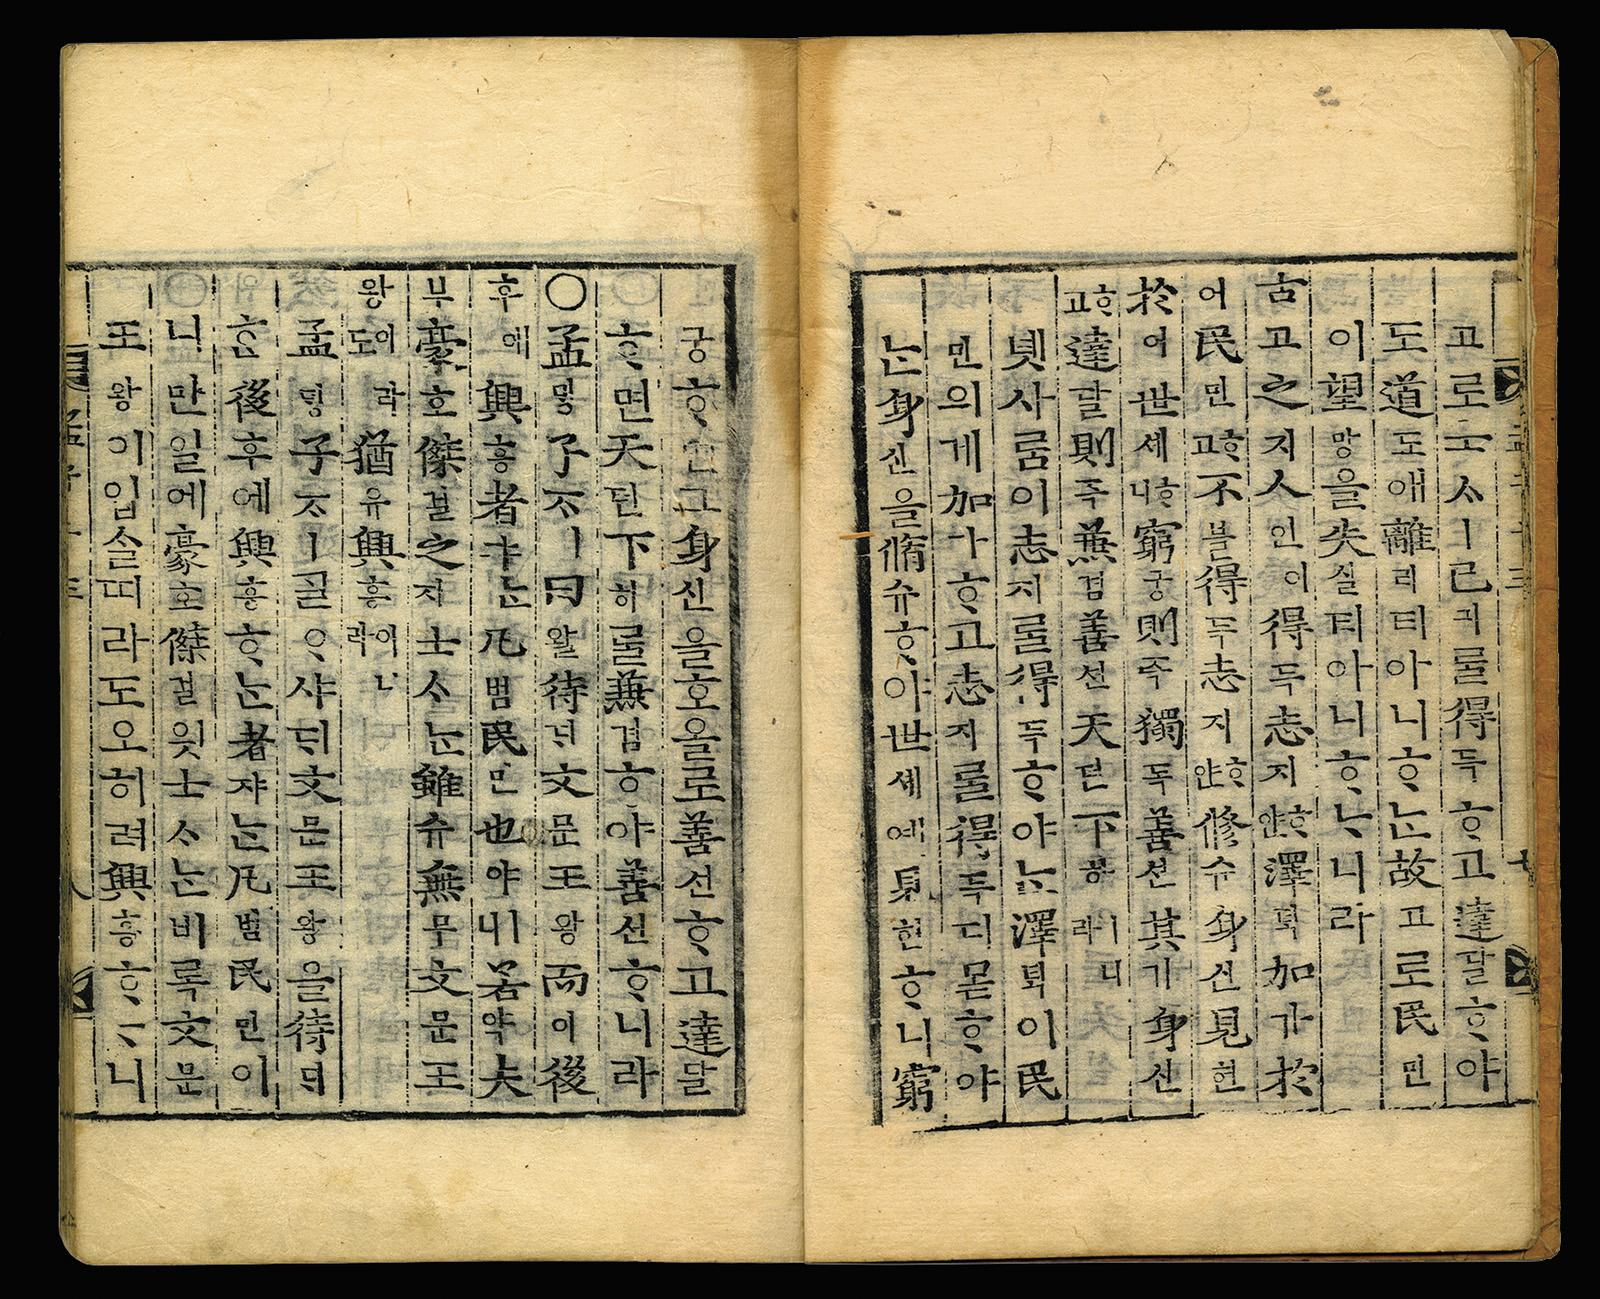 고로士ᄉᆞㅣ己긔ᄅᆞᆯ得득ᄒᆞ고達달ᄒᆞ야
도道도애離리티아니ᄒᆞᄂᆞᆫ故고로民민
이望망을失실티아니ᄒᆞᄂᆞ니라
古고之지人인이得득志지ᄒᆞ얀澤ᄐᆡᆨ加가於
어民민ᄒᆞ고不블得득志지ᄒᆞ얀修슈身신見현
於어世셰ᄒᆞ니窮궁則즉獨독善션其기身신
ᄒᆞ고達달則즉兼겸善션天텬下하ㅣ니라
녯사ᄅᆞᆷ이志지ᄅᆞᆯ得득ᄒᆞ야ᄂᆞᆫ澤ᄐᆡᆨ이民
민의게加가ᄒᆞ고志지ᄅᆞᆯ得득디몯ᄒᆞ야
ᄂᆞᆫ身신을脩슈ᄒᆞ야世셰예見현ᄒᆞ니窮
궁ᄒᆞ면그身신을호올로善션ᄒᆞ고達달
ᄒᆞ면天텬下하ᄅᆞᆯ兼겸ᄒᆞ야善션ᄒᆞ니라
○孟ᄆᆡᆼ子ᄌᆞㅣ曰왈待ᄃᆡ文문王왕而이後
후에興흥者쟈ᄂᆞᆫ凡범民민也야ㅣ니若약夫
부豪호傑걸之지士ᄉᆞᄂᆞᆫ雖슈無무文문王
왕이라도猶유興흥이니라
孟ᄆᆡᆼ子ᄌᆞㅣᄀᆞᆯᄋᆞ샤ᄃᆡ文문王왕을待ᄃᆡ
ᄒᆞᆫ後후에興흥ᄒᆞᄂᆞᆫ者쟈ᄂᆞᆫ凡범民민이
니만일에豪호傑걸읫士ᄉᆞᄂᆞᆫ비록文문
王왕이업슬ᄯᅵ라도오히려興흥ᄒᆞᄂᆞ니